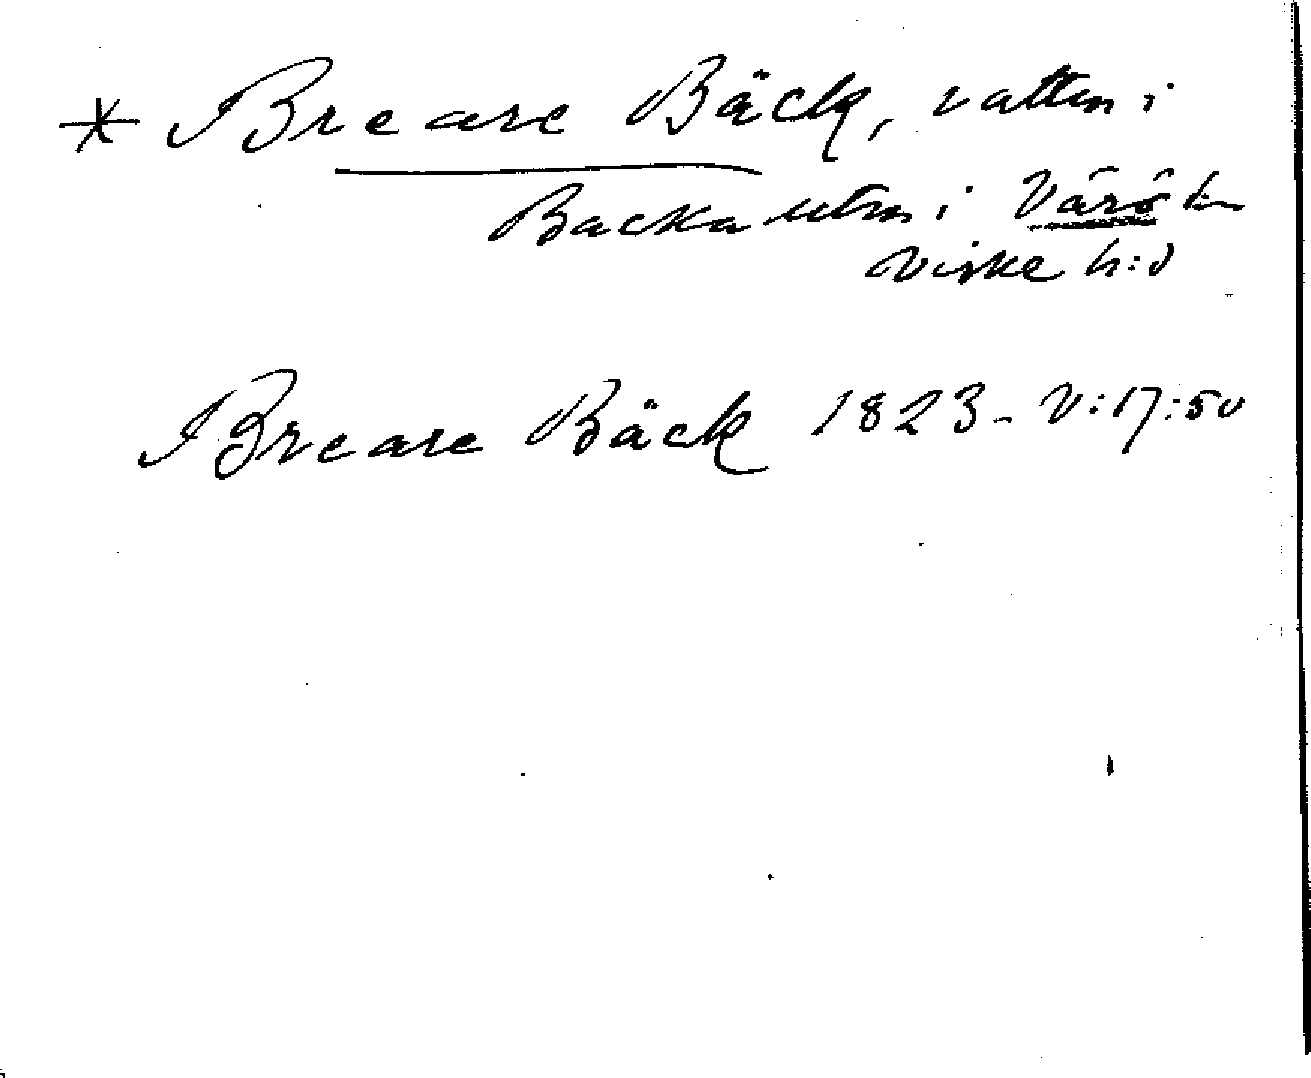 * Breare Bäck, vatten i
Backa utm. i Värö sn
Viske h:d
Breare Bäck 1823 - V:17:50